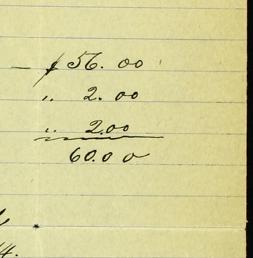 — $56. 00
" 2. 00
" 2.00
60.00
4.